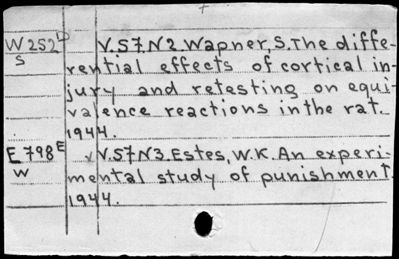 W252D V.57N2.Wapner,S.The diffe-
S rential effects of cortical in-
jury and retesting on equi-
valence reactions in the rat.
1944.
E798E V.57N3.Estes,W.K.An experi-
W mental study of punishment
1944.